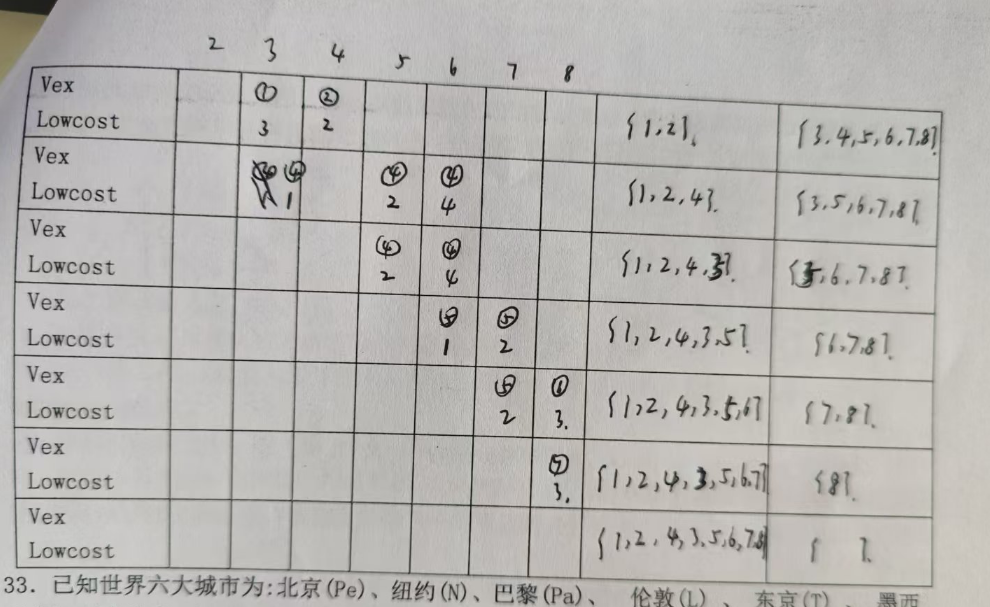 2 3 4 5 6 7 8
Vex ① ②
Lowcost 3 2 {1,2}. {3,4,5,6,7,8}.
Vex ④ ④ ④
Lowcost 1 2 4 {1,2,4}. {3,5,6,7,8}.
Vex ④ ④
Lowcost 2 4 {1,2,4,3}. {5,6,7,8}.
Vex ⑤ ⑤
Lowcost 1 2 {1,2,4,3,5}. {6,7,8}.
Vex ⑤
Lowcost 2 3. {1,2,4,3,5,6} {7,8}.
Vex ⑦
Lowcost 3. {1,2,4,3,5,6,7} {8}.
Vex
Lowcost {1,2,4,3,5,6,7,8} { }.
33. 已知世界六大城市为:北京(Pe)、纽约(N)、巴黎(Pa)、 伦敦(L) 、 东京(T) 、 墨西